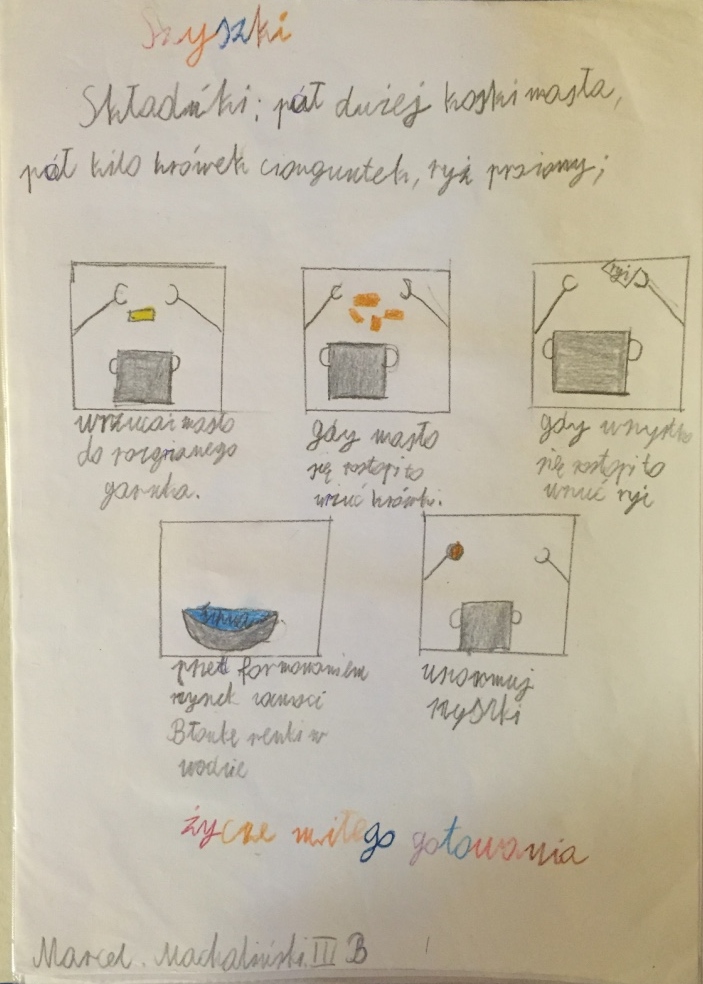 Szyszki
Składniki: pół dużej kostki masła,
pół kilo krówek cionguntek, ryż prziony;
ryż
wrzucai masło
do rozgrianego
garnka.
gdy masło
się rostopiło
wrzuć krówki.
gdy wszystko
się rostopiło
wrzuć ryż
przet formowaniem
szyszek zamoci
renki w
wodzie
uformuj
szyszki
życze miłego gotowania
Marcel. Machaliński III B